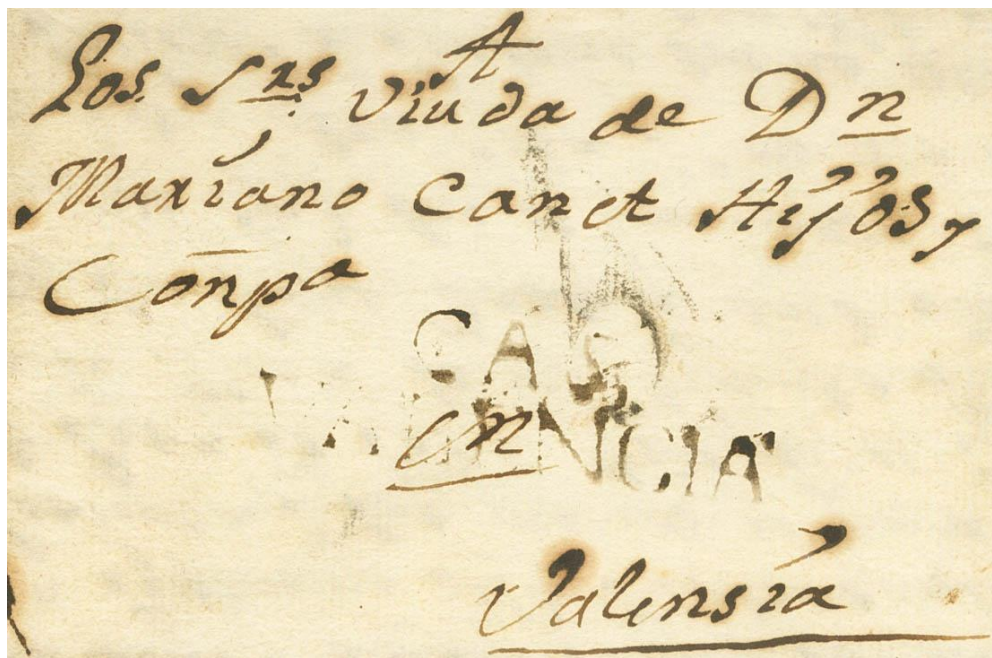 A
Los. Srs. Viuda de Dn
Mariano Canet Hijos y
Conpa
CA
VALENCIA
en
Valensia